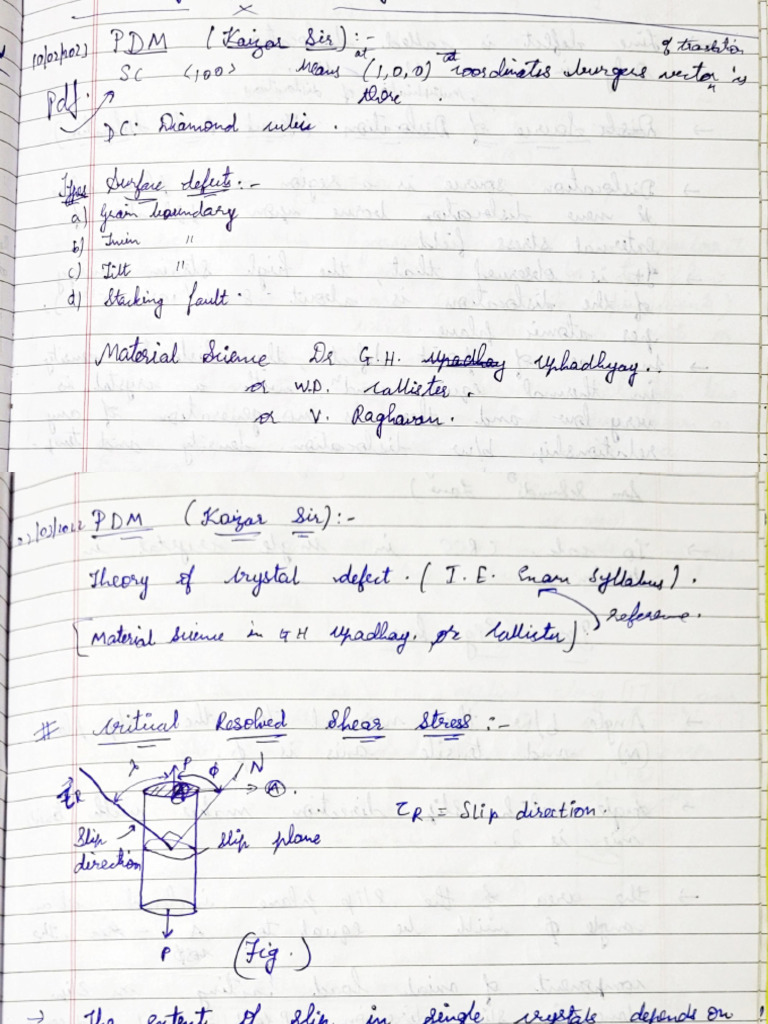 10/02/2023 PDM (Kaizar Sir):-
of translation
SC <100> means at (1,0,0) coordinates burgers vector is
there.
Pdf.
DC: Diamond cubic.
Types Surface defects:-
a) Grain boundary
b) Twin "
c) Tilt "
d) Stacking fault.
Material Science Dr G.H. Upadhay Uphadhyay.
or W.D. Callister.
or V. Raghavan.
PDM (Kaizar Sir):-
Theory of crystal defect. (I.E. Exam Syllabus).
reference.
[Material Science in GH Upadhay. or Callister]
# Critical Resolved Shear Stress:-
λ P φ N
A.
τR
τR = Slip direction
Slip
direction
slip plane
P
(Fig.)
→ The extent of slip in single crystals depends on